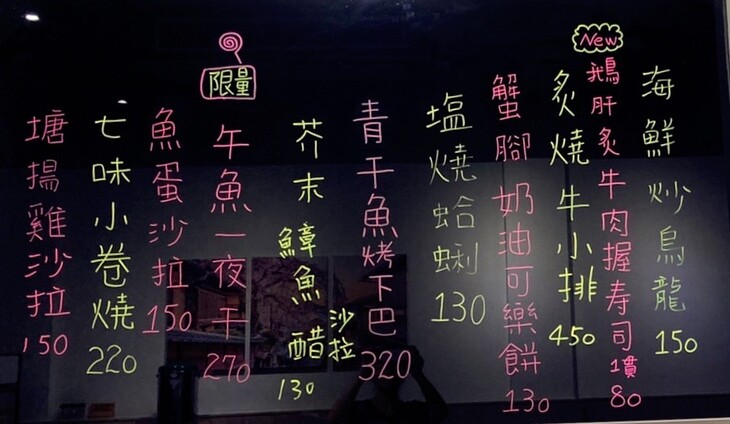 海鮮炒烏龍 150
New
鵝肝炙牛肉握寿司 1貫 80
炙燒牛小排 450
蟹腳奶油可樂餅 130
塩燒蛤蜊 130
青干魚烤下巴 320
芥末鱆魚醋沙拉 130
限量
午魚一夜干 270
魚蛋沙拉 150
七味小卷燒 220
塘揚雞沙拉 150